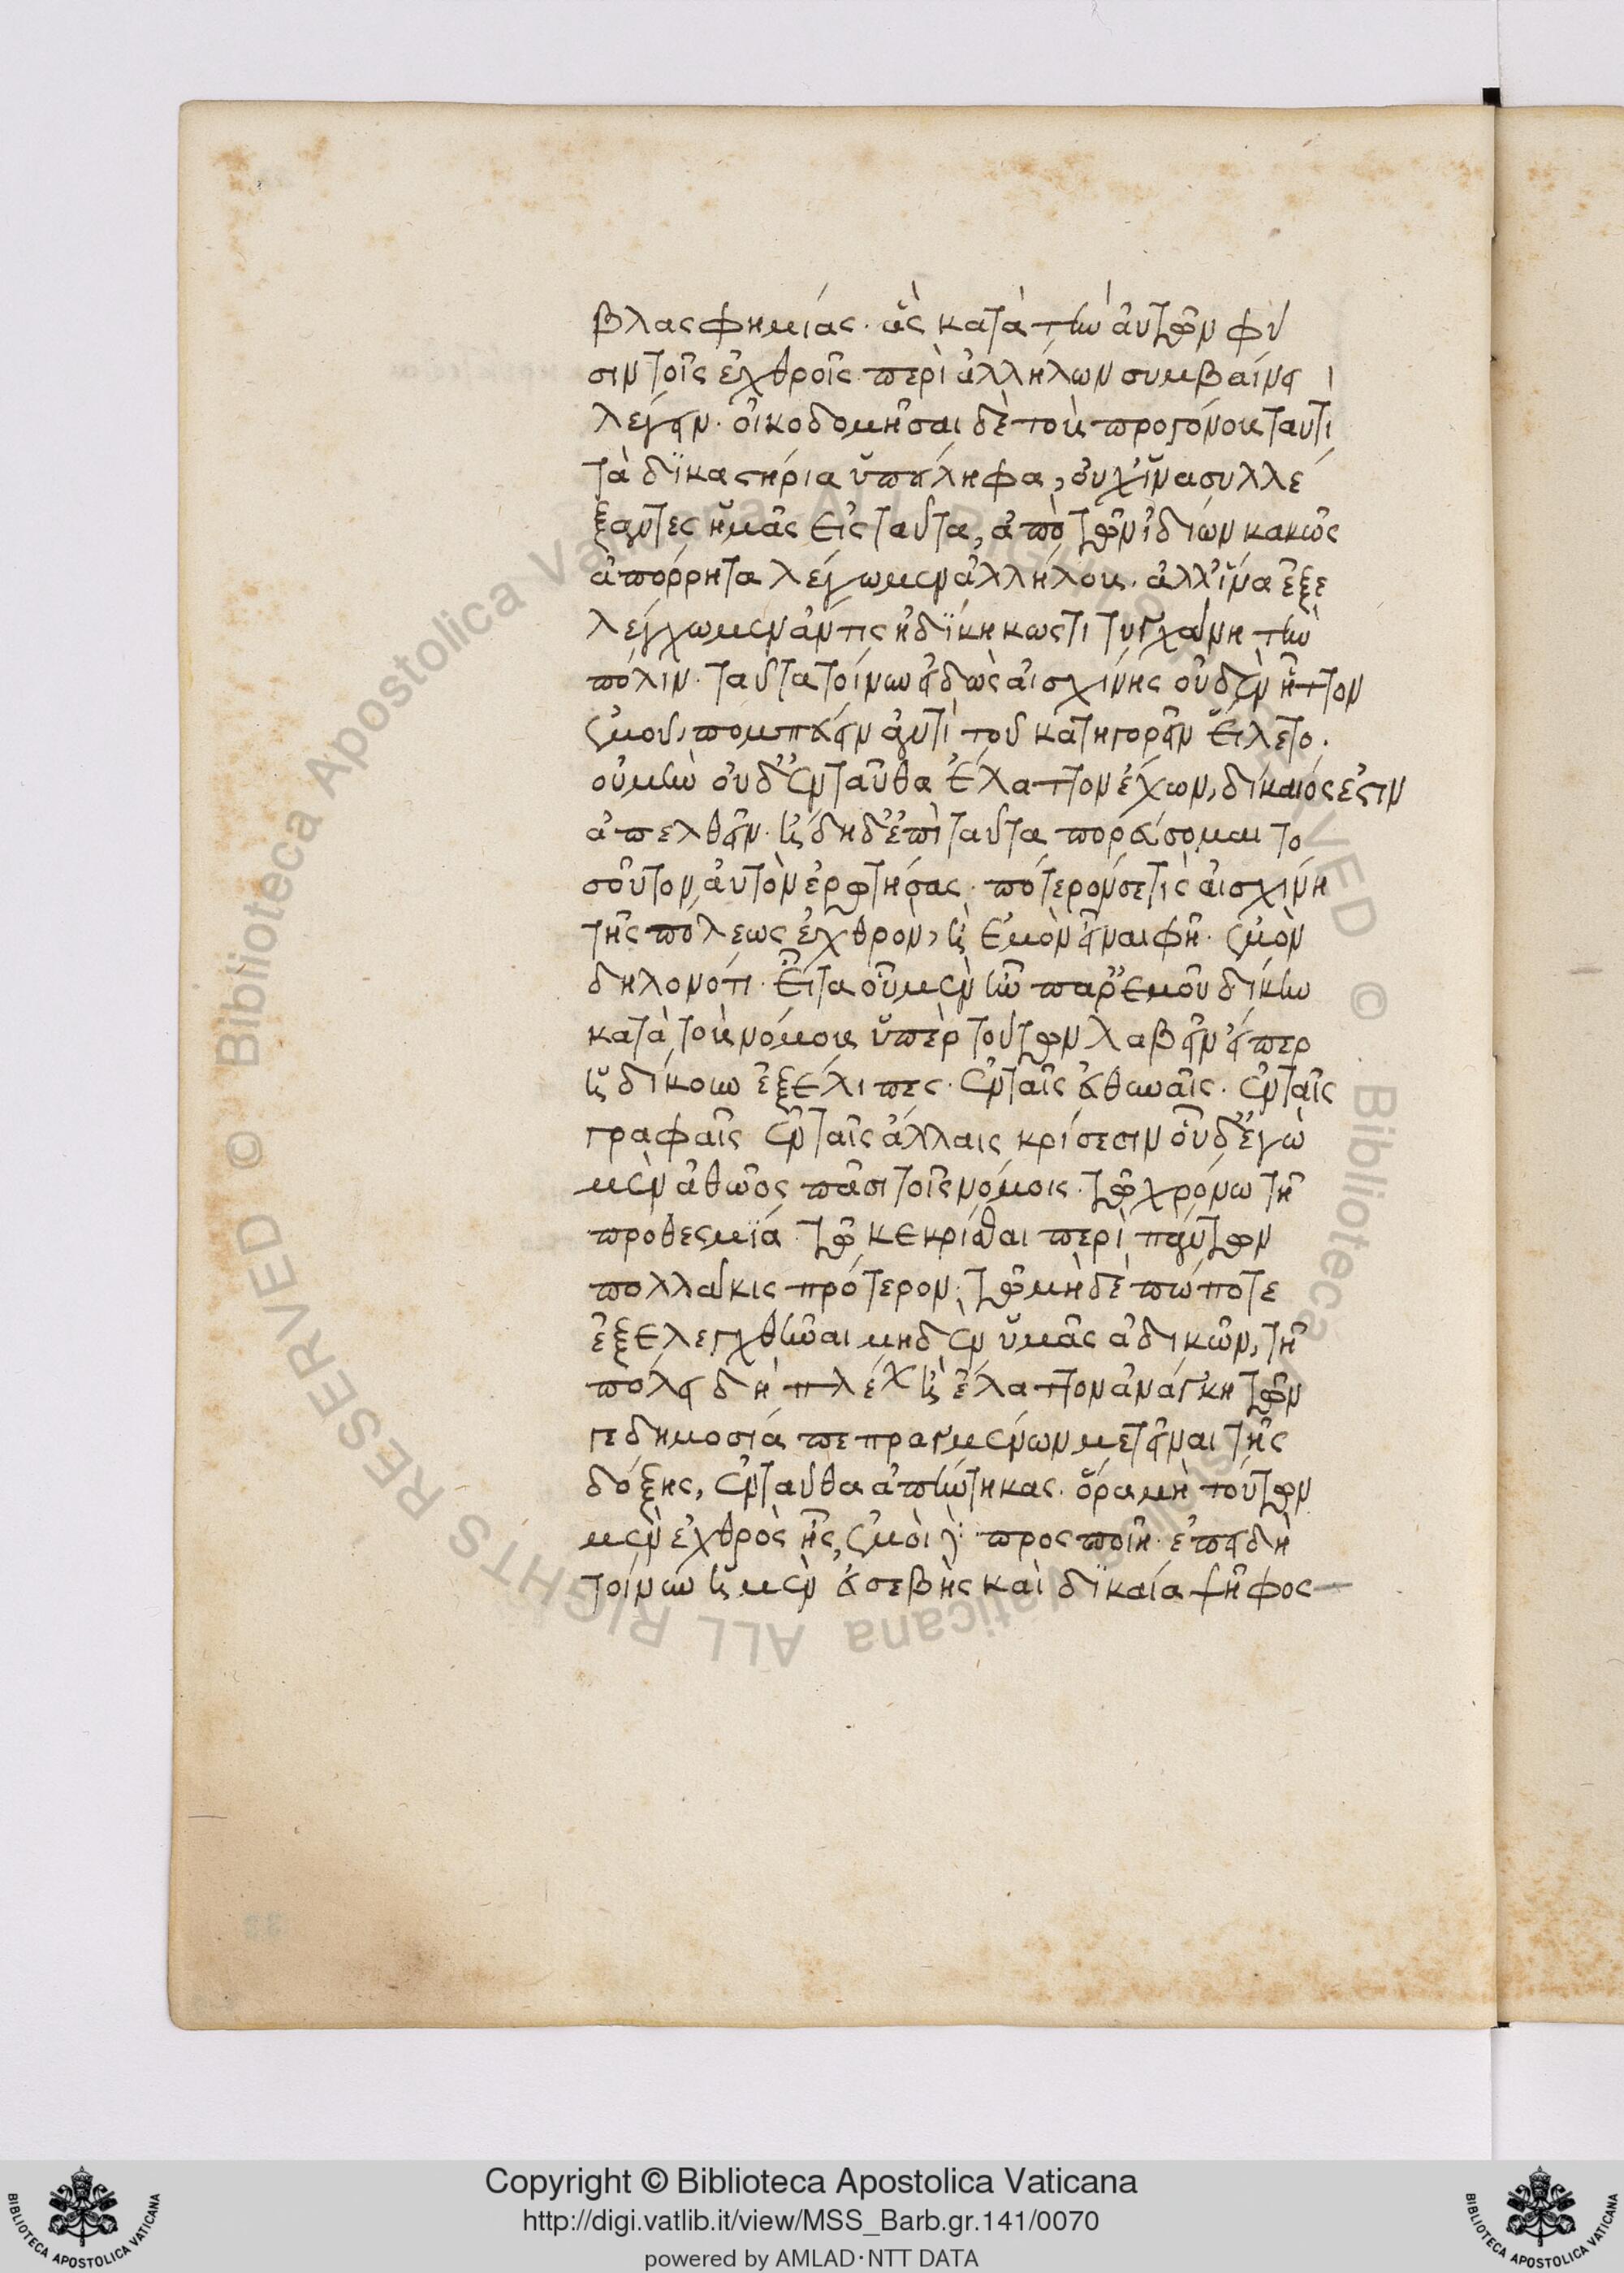 βλασφημίας· ἃς κατὰ τὴν αὑτῶν φύ
σιν τοῖς ἐχθροῖς περὶ ἀλλήλων συμβαίνει
λέγειν· οἰκοδομῆσαι δὲ τοὺς προγόνους ταυτὶ
τὰ δικαστήρια ὑπείληφα, οὐχ ἵνα συλλέ
ξαντες ἡμᾶς εἰς ταῦτα, ἀπὸ τῶν ἰδίων κακῶς
ἀπόρρητα λέγωμεν ἀλλήλους· ἀλλ' ἵνα ἐξε
λέγχωμεν ἄν τις ἠδικηκώς τι τυγχάνη τὴν
πόλιν· ταῦτα τοίνυν εἰδὼς αἰσχίνης οὐδὲν ἧττον
ἐμοῦ, πομπεύειν ἀντὶ τοῦ κατηγορεῖν εἵλετο·
οὐ μὴν οὐδ' ἐνταῦθα ἔλαττον ἔχων, δίκαιός ἐστιν
ἀπελθεῖν· καὶ δὴ δ' ἐπὶ ταῦτα πορεύσομαι το
σοῦτον αὐτὸν ἐρωτήσας· πότερόν σέ τις αἰσχίνη
τῆς πόλεως ἐχθρὸν, καὶ ἐμὸν εἶναι φῆ· ἐμὸν
δηλονότι· εἶτα οὗ μὲν ἦν παρ' ἐμοῦ δίκην
κατὰ τοὺς νόμους ὑπὲρ τούτων λαβεῖν εἴπερ
ἠδίκουν ἐξέλιπες· ἐν ταῖς εὐθύναις· ἐν ταῖς
γραφαῖς ἐν ταῖς ἄλλαις κρίσεσιν οὗ δ' ἐγὼ
μὲν ἀθῶος πᾶσι τοῖς νόμοις· τῶ χρόνω τῆ
προθεσμία τῶ κεκρίσθαι περὶ πάντων
πολλάκις πρότερον· τῶ μὴ δὲ πώποτε
ἐξελεγχθῆναι μηδὲν ὑμᾶς ἀδικῶν, τῆ
πόλει δὴ πλέον καὶ ἔλαττον ἀνάγκη τῶν
γε δημοσία πεπραγμένων μετεῖναι τῆς
δόξης, ἐνταῦθα ἀπήντηκας· ὅρα μὴ τούτων
μὲν ἐχθρὸς ἦς, ἐμοὶ δὲ προσποιῆ· ἐπειδὴ
τοίνυν ἡ μὲν εὐσεβὴς καὶ δικαία ψῆφος
Copyright © Biblioteca Apostolica Vaticana
http://digi.vatlib.it/view/MSS_Barb.gr.141/0070
powered by AMLAD·NTT DATA